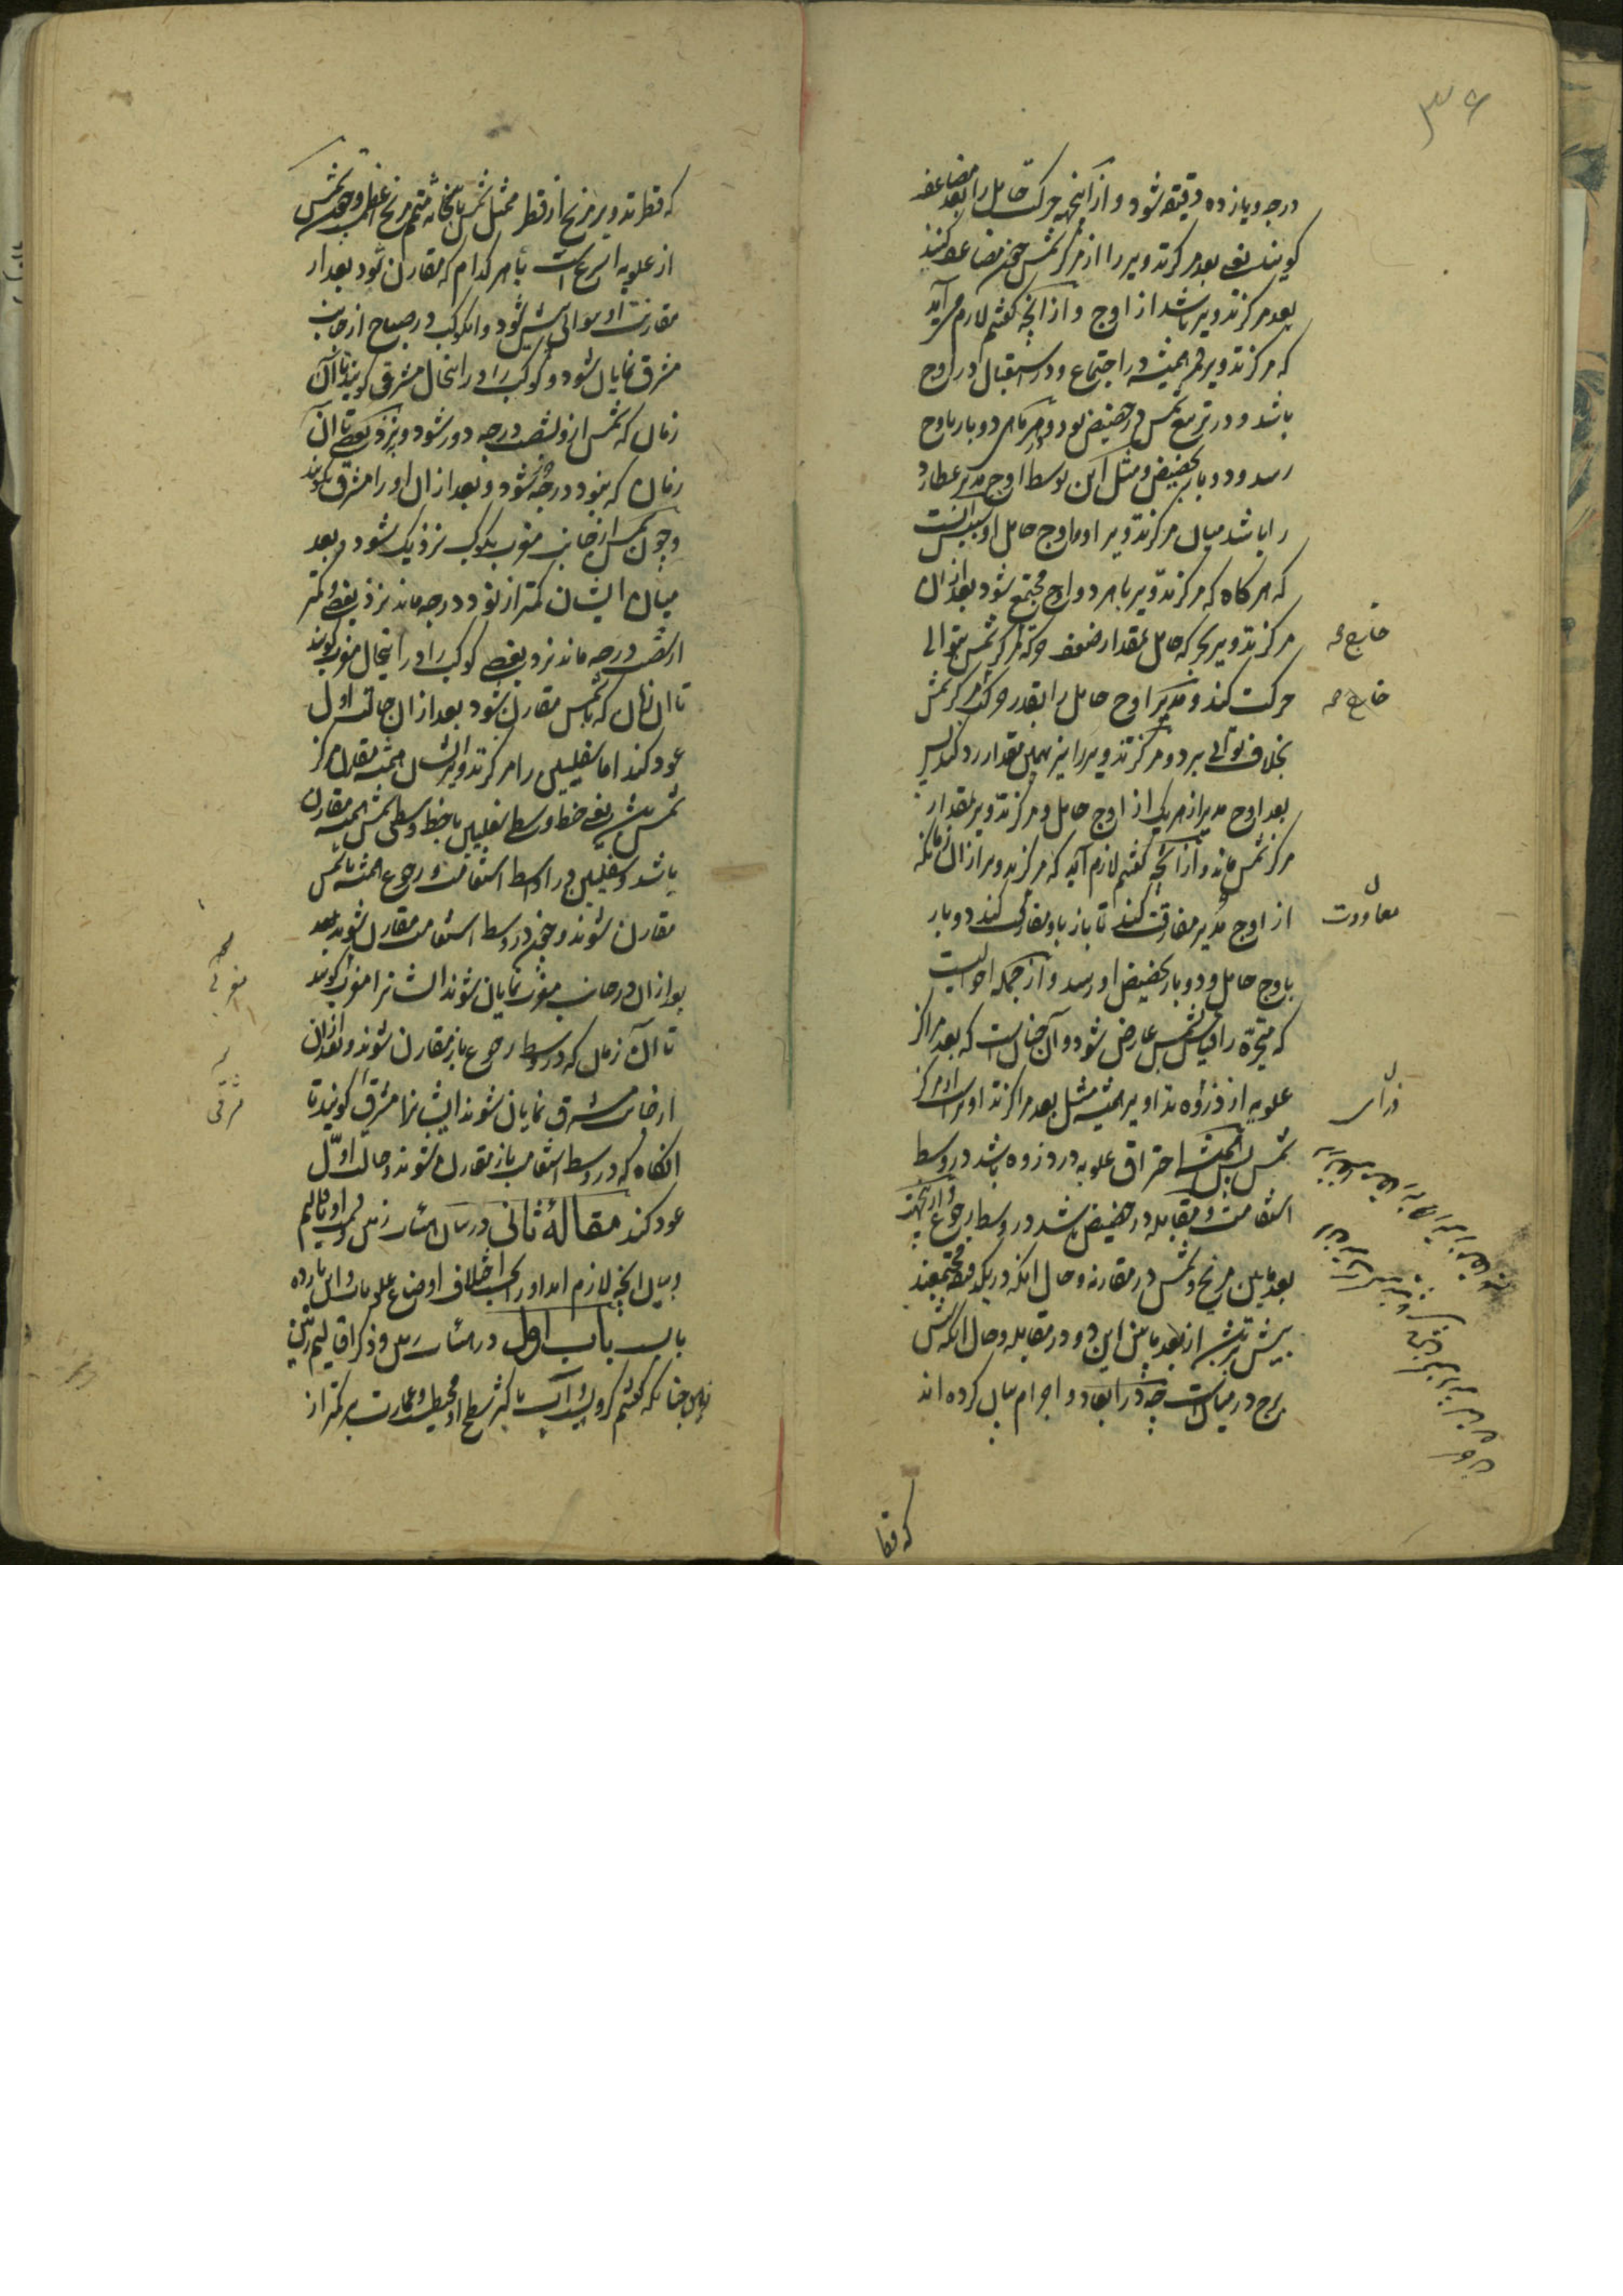 ۳۶
درجه و یازده دقیقه شود و از اینجهه حرکت حامل را بعد مضاعف
کویند یعنی بعد مرکز تدویر را از مرکز شمس چون مضاعف کنند
بعد مرکز تدویر باشد از اوج و از آنچه کفتیم لازم می آید
که مرکز تدویر قمر همیشه در اجتماع و در استقبال در اوج
باشد و در تربیع شمس در حضیض بود و در هر ماهی دو بار باوج
رسد و دو بار بحضیض و مثل این توسط اوج مدیر عطارد
را باشد میان مرکز تدویر او و اوج حامل او سبب آنست
که هر کاه که مرکز تدویر با هر دو اوج مجتمع شود بعد از آن
مرکز تدویر بحرکه حامل بمقدار ضعف حرکه مرکز شمس بتوالی
حرکت کند و مدیر اوج حامل را بقدر حرکت مرکز شمس
بخلاف توالی برد و مرکز تدویر را نیز بهمین مقدار رد کند پس
بعد اوج مدیر از هر یکی از اوج حامل و مرکز تدویر بمقدار
مرکز شمس ماند و از آنچه کفتیم لازم آید که مرکز تدویر از آن زمانکه
از اوج مدیر مفارقت کند تا باز باو مقارنت کند دو بار
باوج حامل و دو بار بحضیض او رسد و از جمله احوالیست
که متحیره را بقیاس شمس عارض شود و آن چنانست که بعد مراکز
علویه از ذروه تداویر همیشه مثل بعد مراکز تداویر است از مرکز
شمس پس همیشه احتراق علویه در ذروه باشد در وسط
استقامت و مقابله در حضیض باشد در وسط رجوع و از اینجهت
بعد مابین مریخ و شمس در مقارنه و حال آنکه در یک دقیقه مجتمعند
بیش باشد از بعد مابین این دو در مقابله و حال آنکه شش
برج در میانست چه در ابعاد و اجرام بیان کرده اند
خارج مه
خارج مه
معاودت
که قطر
که قطر تدویر مریخ از قطر ممثل شمس با ثخانه متمم مریخ اعظم است و چون شمس
از علویه اسرع است با هر کدام که مقارن شود بعد از
مقارنت او بتوالی پیش شود و آن کوکب در صباح از جانب
مشرق نمایان شود و کوکب را در اینحال مشرقی کویند تا آن
زمان که شمس از و شصت درجه دور شود و بنزد بعضی تا آن
زمان که بنود درجه شود و بعد از آن او را مشرق نکویند
و چون شمس از جانب مغرب بکوکب نزدیک شود و بعد
میان ایشان کمتر از نود درجه ماند نزد بعضی و کمتر
از شصت درجه ماند نزد بعضی کوکب را در اینحال مغربی کویند
تا آن زمان که با شمس مقارن شود بعد از آن حالت اول
عود کند اما سفلیین را مرکز تدویر ایشان همیشه مقارن مرکز
شمس باشد یعنی خط وسط سفلیین با خط وسط شمس همیشه مقارن
باشد و سفلیین در اوسط استقامت و رجوع همیشه با شمس
مقارن شوند و چون در وسط استقامت مقارن شوند بعد
بعد از آن در جانب مغرب نمایان شوند ایشانرا مغربی کویند
تا آن زمان که در وسط رجوع باز مقارن شوند و بعد از آن
از جانب مشرق نمایان شوند ایشانرا مشرقی کویند تا
آنکاه که در وسط استقامت باز مقارن شوند و حالت اول
عود کند مقالهٔ ثانی در بیان هیئات زمین و قسمت او باقالیم
و بیان آنچه لازم آمد او را بحسب اختلاف اوضاع علویات و این یازده
باب باب اول در هیئات زمین و ذکر اقالیم زمین
زمین چنانکه کفتیم کرویست و آب باکثر سطح او محیط و عمارت بر کمتر از
مغربی
مشرقی